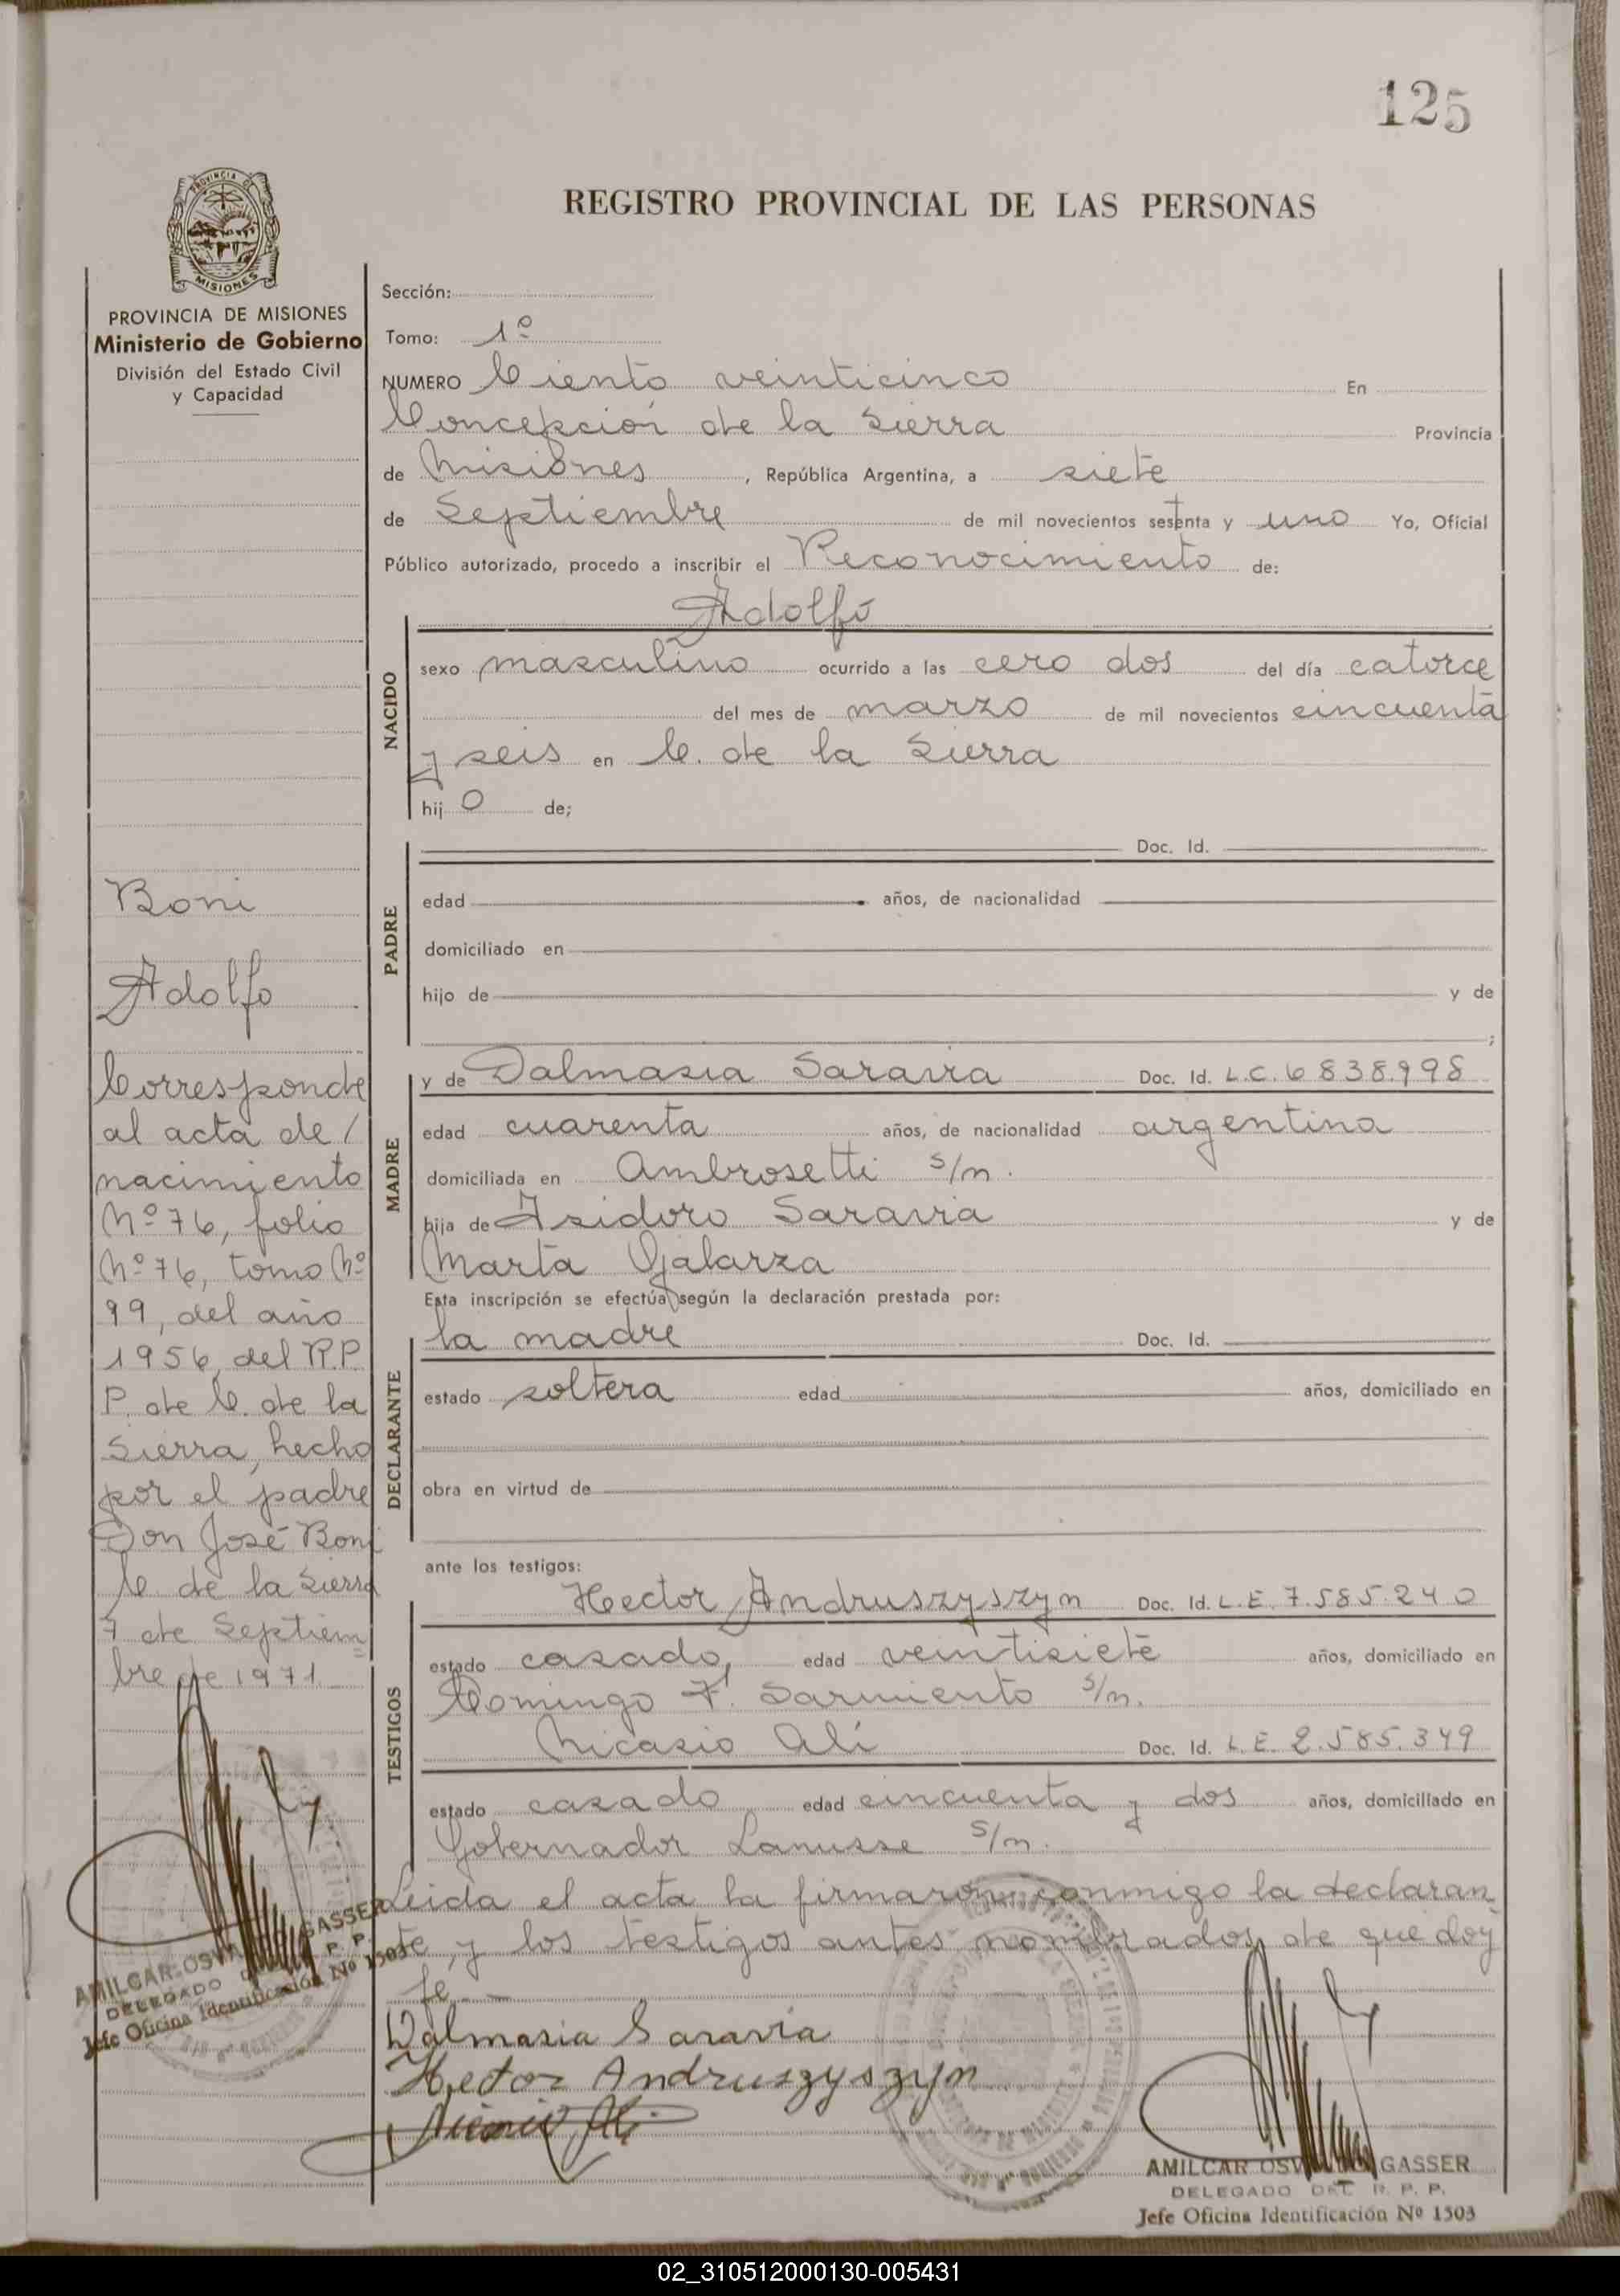 125
REGISTRO PROVINCIAL DE LAS PERSONAS
PROVINCIA DE MISIONES
Ministerio de Gobierno
División del Estado Civil
y Capacidad
Boni
Adolfo
Corresponde
al acta de /
nacimiento
Nº 76, folio
Nº 76, tomo Nº
99, del año
1956, del R.P.
P. de C. de la
Sierra, hecho
por el padre
Don José Boni
C. de la Sierra
7 de Septiem=
bre de 1971
AMILCAR OSVALDO GASSER
DELEGADO DEL R. P. P.
Jefe Oficina Identificación Nº 1503
Sección:
Tomo: 1º
NUMERO Ciento veinticinco En
Concepción de la Sierra Provincia
de Misiones, República Argentina, a siete
de Septiembre de mil novecientos sesenta y uno Yo, Oficial
Público autorizado, procedo a inscribir el Reconocimiento de:
Adolfo
NACIDO
sexo masculino ocurrido a las cero dos del día catorce
del mes de marzo de mil novecientos cincuenta
y seis en C. de la Sierra
hij o de;
PADRE
Doc. Id.
edad años, de nacionalidad
domiciliado en
hijo de y de
;
MADRE
y de Dalmasia Saravia Doc. Id. L.C. 6838.998
edad cuarenta años, de nacionalidad argentina
domiciliada en Ambrosetti s/n.
hija de Isidoro Saravia y de
Marta Galarza
Esta inscripción se efectúa según la declaración prestada por:
DECLARANTE
la madre Doc. Id.
estado soltera edad años, domiciliado en
obra en virtud de
ante los testigos:
TESTIGOS
Hector Andruszyszyn Doc. Id. L.E. 7.585.240
estado casado, edad veintisiete años, domiciliado en
Domingo F. Sarmiento s/n.
Nicasio Alí Doc. Id. L.E. 2.585.349
estado casado edad cincuenta y dos años, domiciliado en
Gobernador Lanusse s/n.
Leida el acta la firmaron conmigo la declaran
te y los testigos antes nombrados de que doy
fe.
Dalmasia Saravia
Hector Andruszyszyn
AMILCAR OSVALDO GASSER
DELEGADO DEL R. P. P.
Jefe Oficina Identificación Nº 1503
02_310512000130-005431